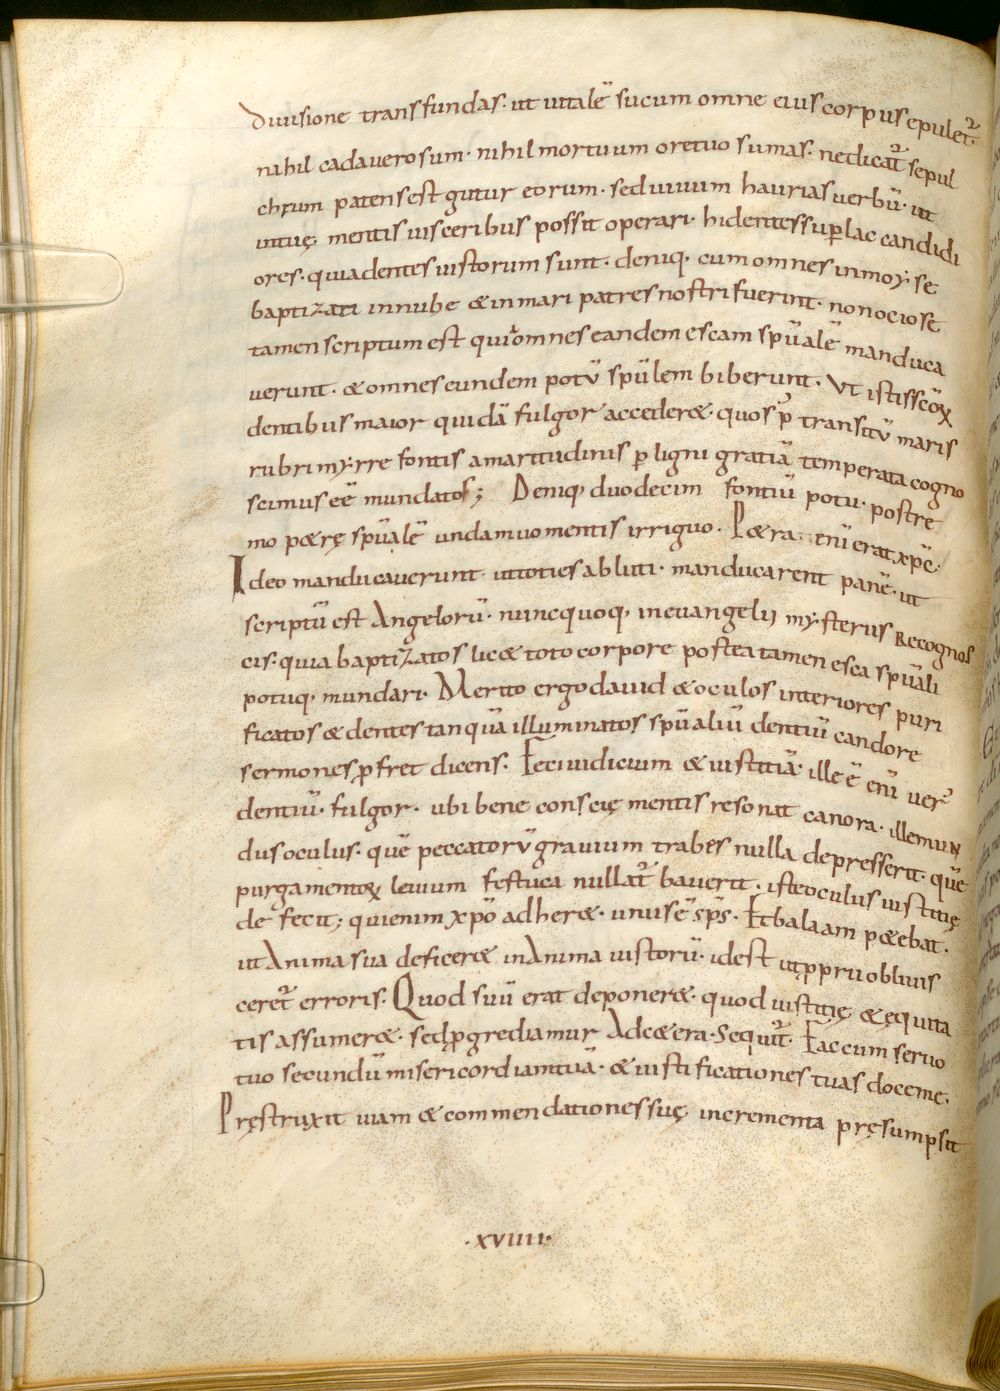 diuisione transfundas· ut uitalē sucum omne eius corpus epulet᷑·
nihil cadauerosum· nihil mortuum ore tuo sumas· ne dicat᷑ sepul
chrum patens est gutur eorum· sed uiuum haurias uerbū· ut
intuę mentis uisceribus possit operari· hi dentes sup̄ lac candidi
ores· quia dentes iustorum sunt· deniq, cum omnes in moẏse
baptizati in nube & in mari patres nostri fuerint· non ociose
tamen scriptum est qui omnes eandem escam sp̄ualē manduca
uerunt· & omnes eundem potū sp̄ulem biberunt· Vt istis scōꝝ
dentibus maior quidā fulgor acceder&· quos p̄ transitū maris
rubri mẏrre fontis amaritudinis p̄ ligni gratiā temperata cogno
scimus eē mundatos; Deniq, duodecim fontiū potu· postre
mo p&rę sp̄ualē undam uomentis irriguo· P&ra enī erat xp̄c·
Ideo manducauerunt· ut toties abluti· manducarent panē· ut
scriptū est Angelorū· nunc quoq, in euangelii mẏsteriis Recognos
cis· quia baptizatos lic& toto corpore postea tamen esca sp̄uali
potuq, mundari· Merito ergo dauid & oculos interiores puri
ficatos & dentes tanquā illuminatos sp̄ualiū dentiū candore
sermones p̄fret dicens· Feci iudicium & iustitiā· ille ē enī uer᷑
dentiū· fulgor· ubi bene conscię mentis resonat canora· ille mun
dus oculus· quē peccatorū grauium trabes nulla depresserit· quē
purgamentoꝝ leuium festuca nullat᷑ bauerit· iste oculus iustitię
defecit; qui enim xp̄o adher&· unus ē sp̄s· Et balaam p&ebat·
ut Anima sua deficer& in Anima iustorū· id est ut p̄prii obliuis
ceret᷑ erroris· Quod suū erat deponer&· quod iustitię & ęquita
tis assumer&· sed p̄grediamur Ad c&era· Sequit᷑· Fac cum seruo
tuo secundū misericordiam tuā· & iustificationes tuas doce me·
Pręstruxit uiam & commendationes suę incrementa pręsumpsit
·xviiii·